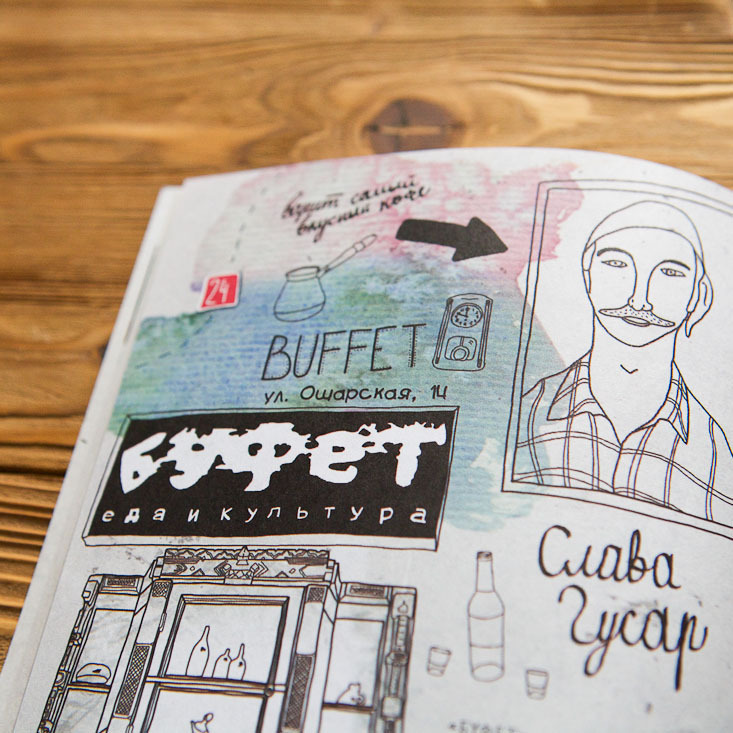 варит самый
вкусный кофе
24
BUFFET
ул. Ошарская, 14
буфет
еда и культура
Слава
Гусар